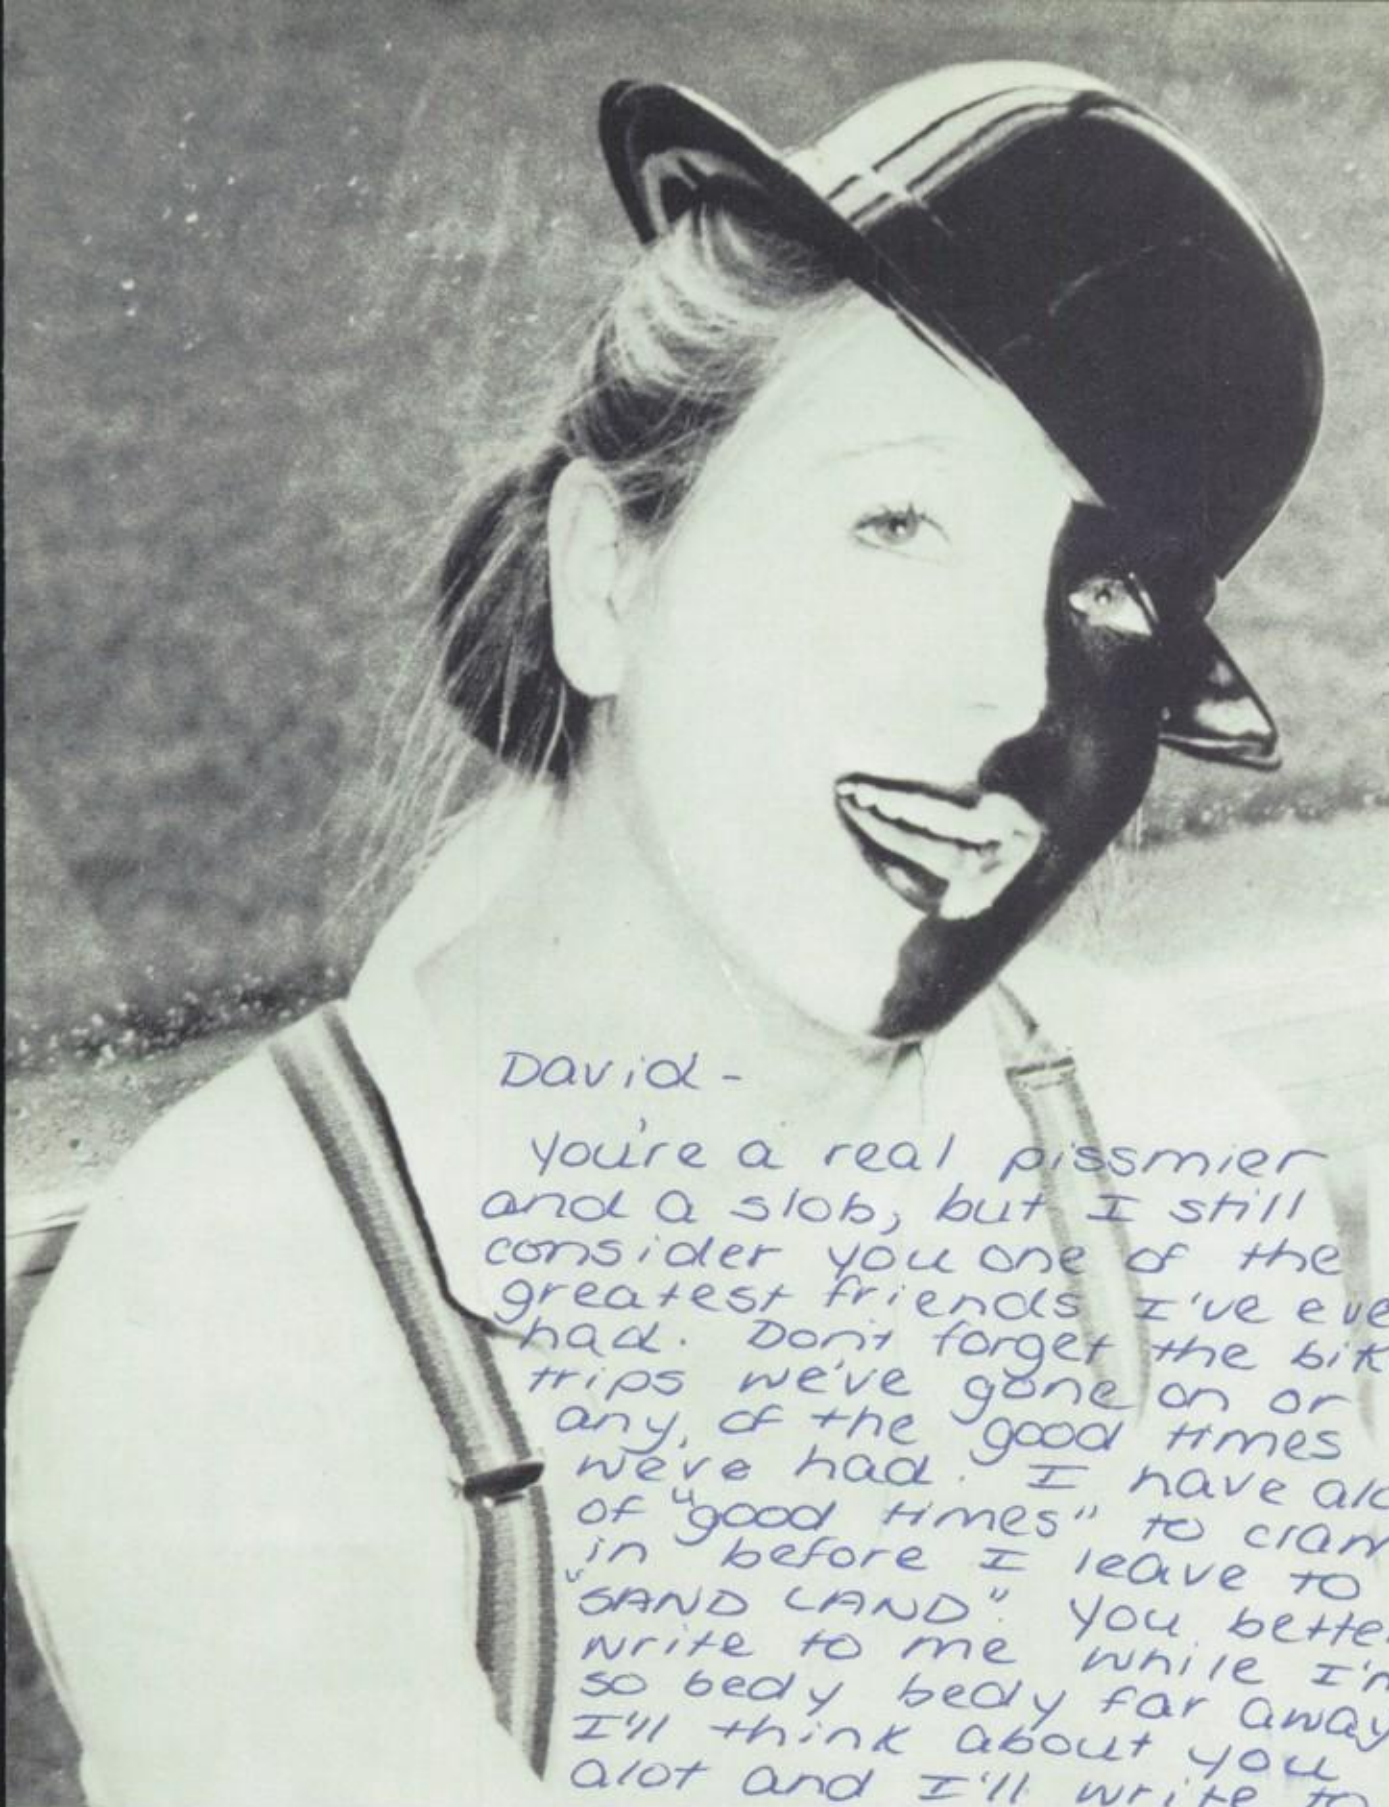 David -
you're a real pissmier
and a slob, but I still
consider you one of the
greatest friends I've eve
had. Don't forget the bik
trips we've gone on or
any, of the good times
we've had. I have alo
of "good times" to cram
in before I leave to
"SAND LAND". You better
write to me while I'm
so bedy bedy far away
I'll think about you
alot and I'll write to